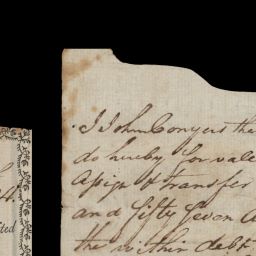 I John Conyers the
do hereby for vale
Assign & transfer
and fifty seven A
the within debt
4.
ited